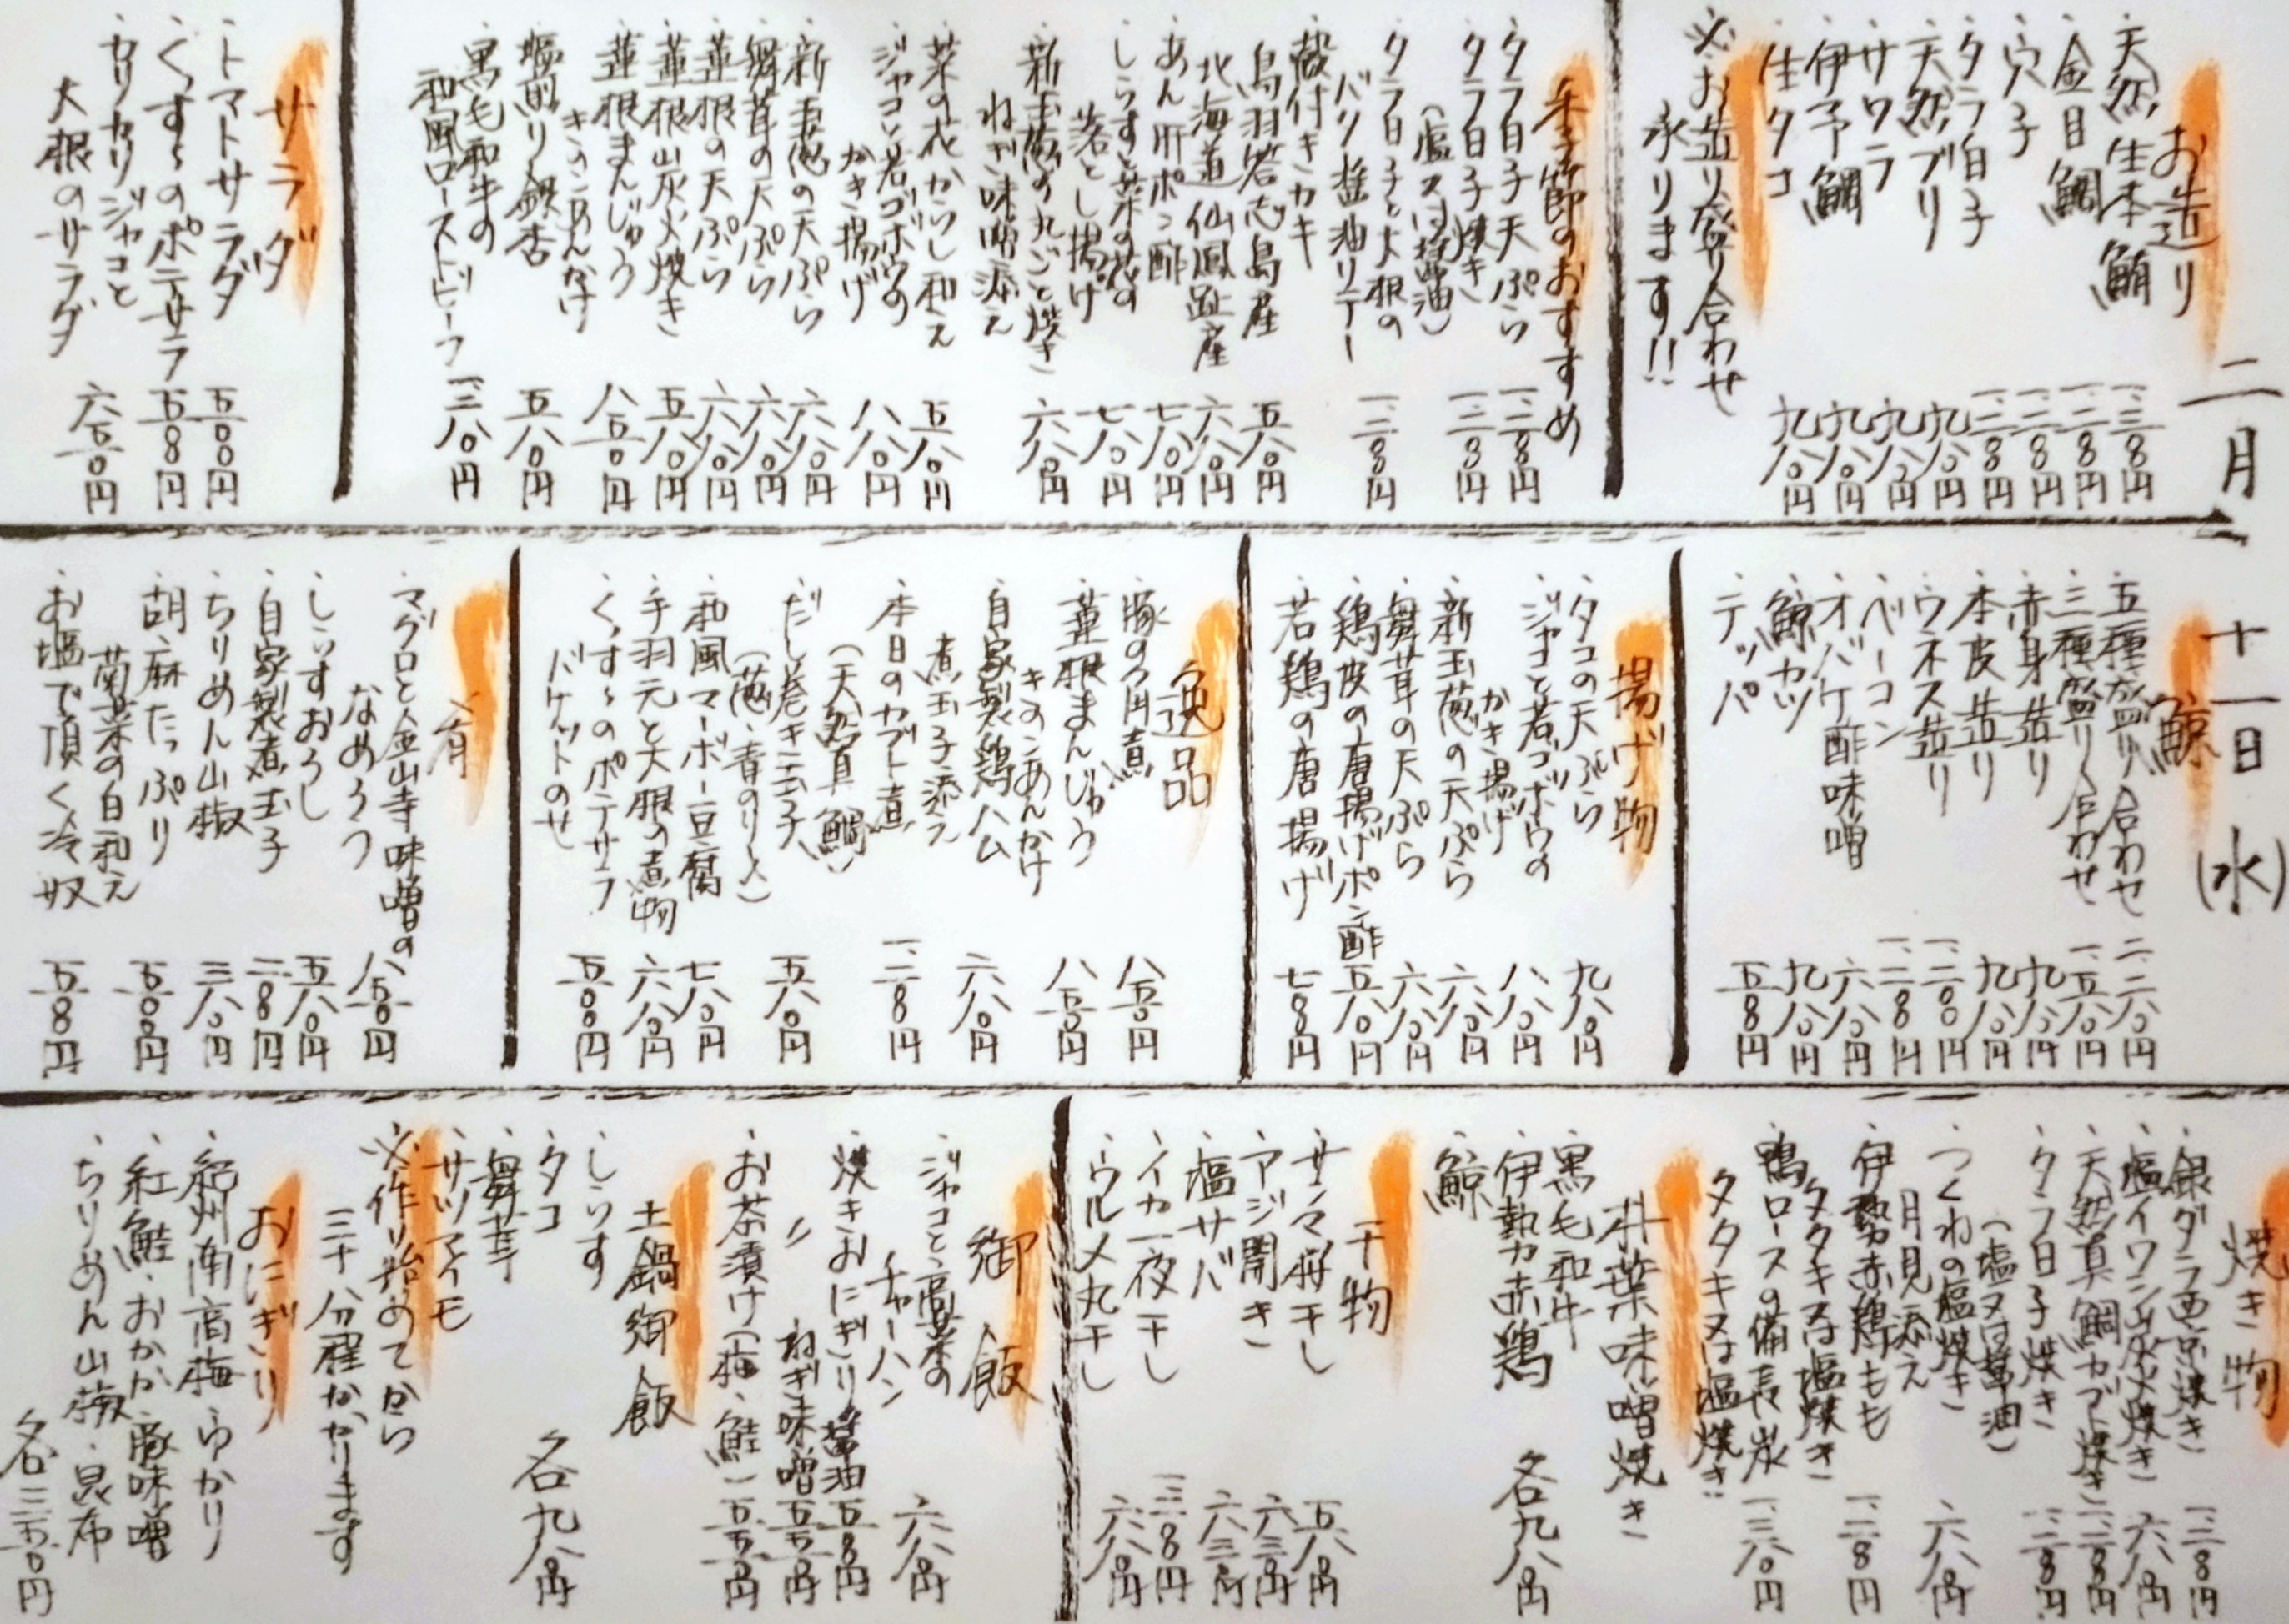 二月
十一日
(水)
お造り
・天然生本鮪 一、三八〇円
・金目鯛 一、二八〇円
・穴子 一、二八〇円
・タラ白子 一、二八〇円
・天然ブリ 九八〇円
・サワラ 九八〇円
・伊予鯛 九八〇円
・生タコ 九八〇円
※お造り盛り合わせ
承ります!!
季節のおすすめ
・タラ白子天ぷら 一、二八〇円
・タラ白子焼き
(塩又は醤油) 一、二八〇円
・タラ白子と大根の
バター醤油ソテー 一、二八〇円
・殻付きカキ
鳥羽答志島産 五八〇円
北海道仙鳳趾産 六八〇円
・あん肝ポン酢 七八〇円
・しらすと菜の花の
落とし揚げ 七八〇円
・新玉葱の丸ごと焼き
ねぎ味噌添え 六八〇円
・菜の花からし和え 五八〇円
・ジャコと若ゴボウの
かき揚げ 八八〇円
・新玉葱の天ぷら 六八〇円
・舞茸の天ぷら 六八〇円
・蓮根の天ぷら 六八〇円
・蓮根山灰火焼き 五八〇円
・蓮根まんじゅう
きのこあんかけ 八五〇円
・塩煎り銀杏 五八〇円
・黒毛和牛の
和風ローストビーフ 一、三八〇円
サラダ
・トマトサラダ 五〇〇円
・くっすーのポテサラ 五五〇円
・カリカリジャコと
大根のサラダ 六五〇円
鯨
・五種盛り合わせ 二、二八〇円
・三種盛り合わせ 一、五八〇円
・赤身造り 九八〇円
・本皮造り 九八〇円
・ウネス造り 一、二〇〇円
・ベーコン 一、二八〇円
・オバケ酢味噌 六八〇円
・鯨カツ 九八〇円
・テッパ 五八〇円
揚げ物
・タコの天ぷら 九八〇円
・ジャコと若ゴボウの
かき揚げ 八八〇円
・新玉葱の天ぷら 六八〇円
・舞茸の天ぷら 六八〇円
・鶏皮の唐揚げポン酢 五八〇円
・若鶏の唐揚げ 七八〇円
逸品
・豚の角煮 八五〇円
・蓮根まんじゅう
きのこあんかけ 八五〇円
・自家製鶏ハム
煮玉子添え 六八〇円
・本日のカブト煮
(天然真鯛) 一、二八〇円
・だし巻き玉子
(葱・青のり入) 五八〇円
・和風マーボー豆腐 七八〇円
・手羽元と大根の煮物 六八〇円
・くっすーのポテサラ
バケットのせ 五〇〇円
肴
・マグロと金山寺味噌の
なめろう 八五〇円
・しらすおろし 五八〇円
・自家製煮玉子 二八〇円
・ちりめん山椒 三八〇円
・胡麻たっぷり
菊菜の白和え 五〇〇円
・お塩で頂く冷奴 五八〇円
焼き物
・銀ダラ西京焼き 一、二八〇円
・塩イワシ山灰火焼き 六八〇円
・天然真鯛カブト焼き 一、二八〇円
・タラ白子焼き
(塩又は醤油) 一、二八〇円
・つくねの塩焼き
月見添え 六八〇円
・伊勢赤鶏もも
タタキ又は塩焼き 一、二八〇円
・鴨ロースの備長炭
タタキ又は塩焼き 一、三八〇円
朴葉味噌焼き
・黒毛和牛
・伊勢赤鶏
・鯨
各九八〇円
干物
・サンマ桜干し 五八〇円
・アジ開き 六三〇円
・塩サバ 六三〇円
・イカ一夜干し 一、二八〇円
・ウルメ丸干し 六八〇円
御飯
・ジャコと高菜の
チャーハン 六八〇円
・焼きおにぎり醤油 五五〇円
〃 ねぎ味噌 五五〇円
・お茶漬け(梅・鮭) 五五〇円
土鍋御飯
・しらす
・タコ
・舞茸
・サツマイモ
各九八〇円
※作り始めてから
三十八分程かかります
おにぎり
・紀州南高梅・ゆかり
・紅鮭・おかか・豚味噌
・ちりめん山椒・昆布
各三五〇円